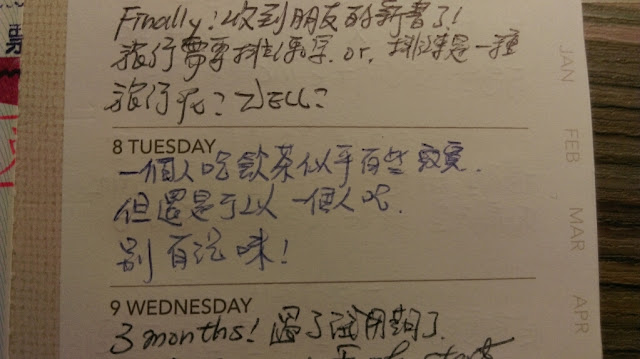 Finally! 收到朋友的新書了!
旅行需要排練嗎. or. 排練是一種
旅行呢? WELL?
8 TUESDAY
一個人吃飲茶似乎有些寂寞.
但還是可以一個人吃.
別有滋味!
9 WEDNESDAY
3 months! 過了試用期了.
JAN
FEB
MAR
APR